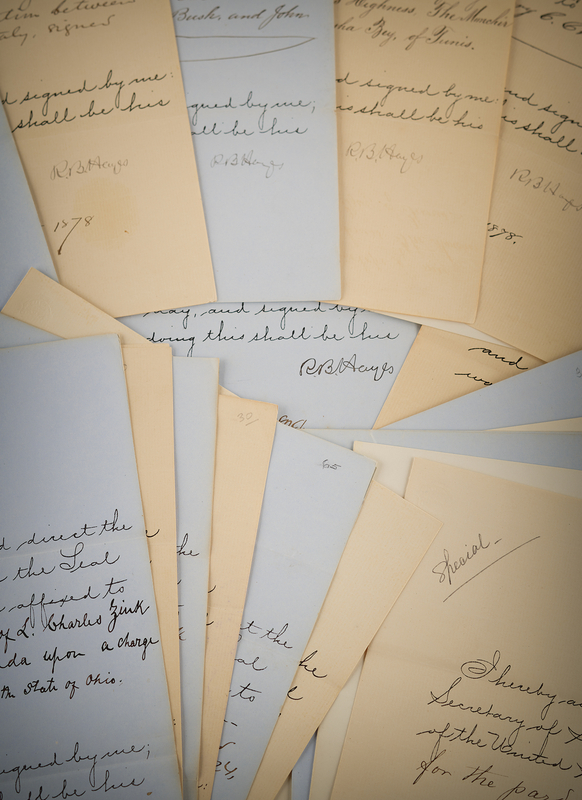 between
signed
d signed by me:
shall be his
R.B.Hayes
1878
Bush, and John
gned by me;
all be his
R.B.Hayes
Highness, The
Bey, of Tunis.
d signed by me:
is shall be his
R.B.Hayes
and sign
is shall
R.B.Hayes
1878.
may, and signed by
doing this shall be his
R.B.Hayes
and
and
30/
d direct the
the Seal
affixed to
of L. Charles Zink
da upon a charge
the State of Ohio.
signed by me;
ll be his
the
t the
al
to
he
Special
I hereby au
Secretary of
of the United
for the par